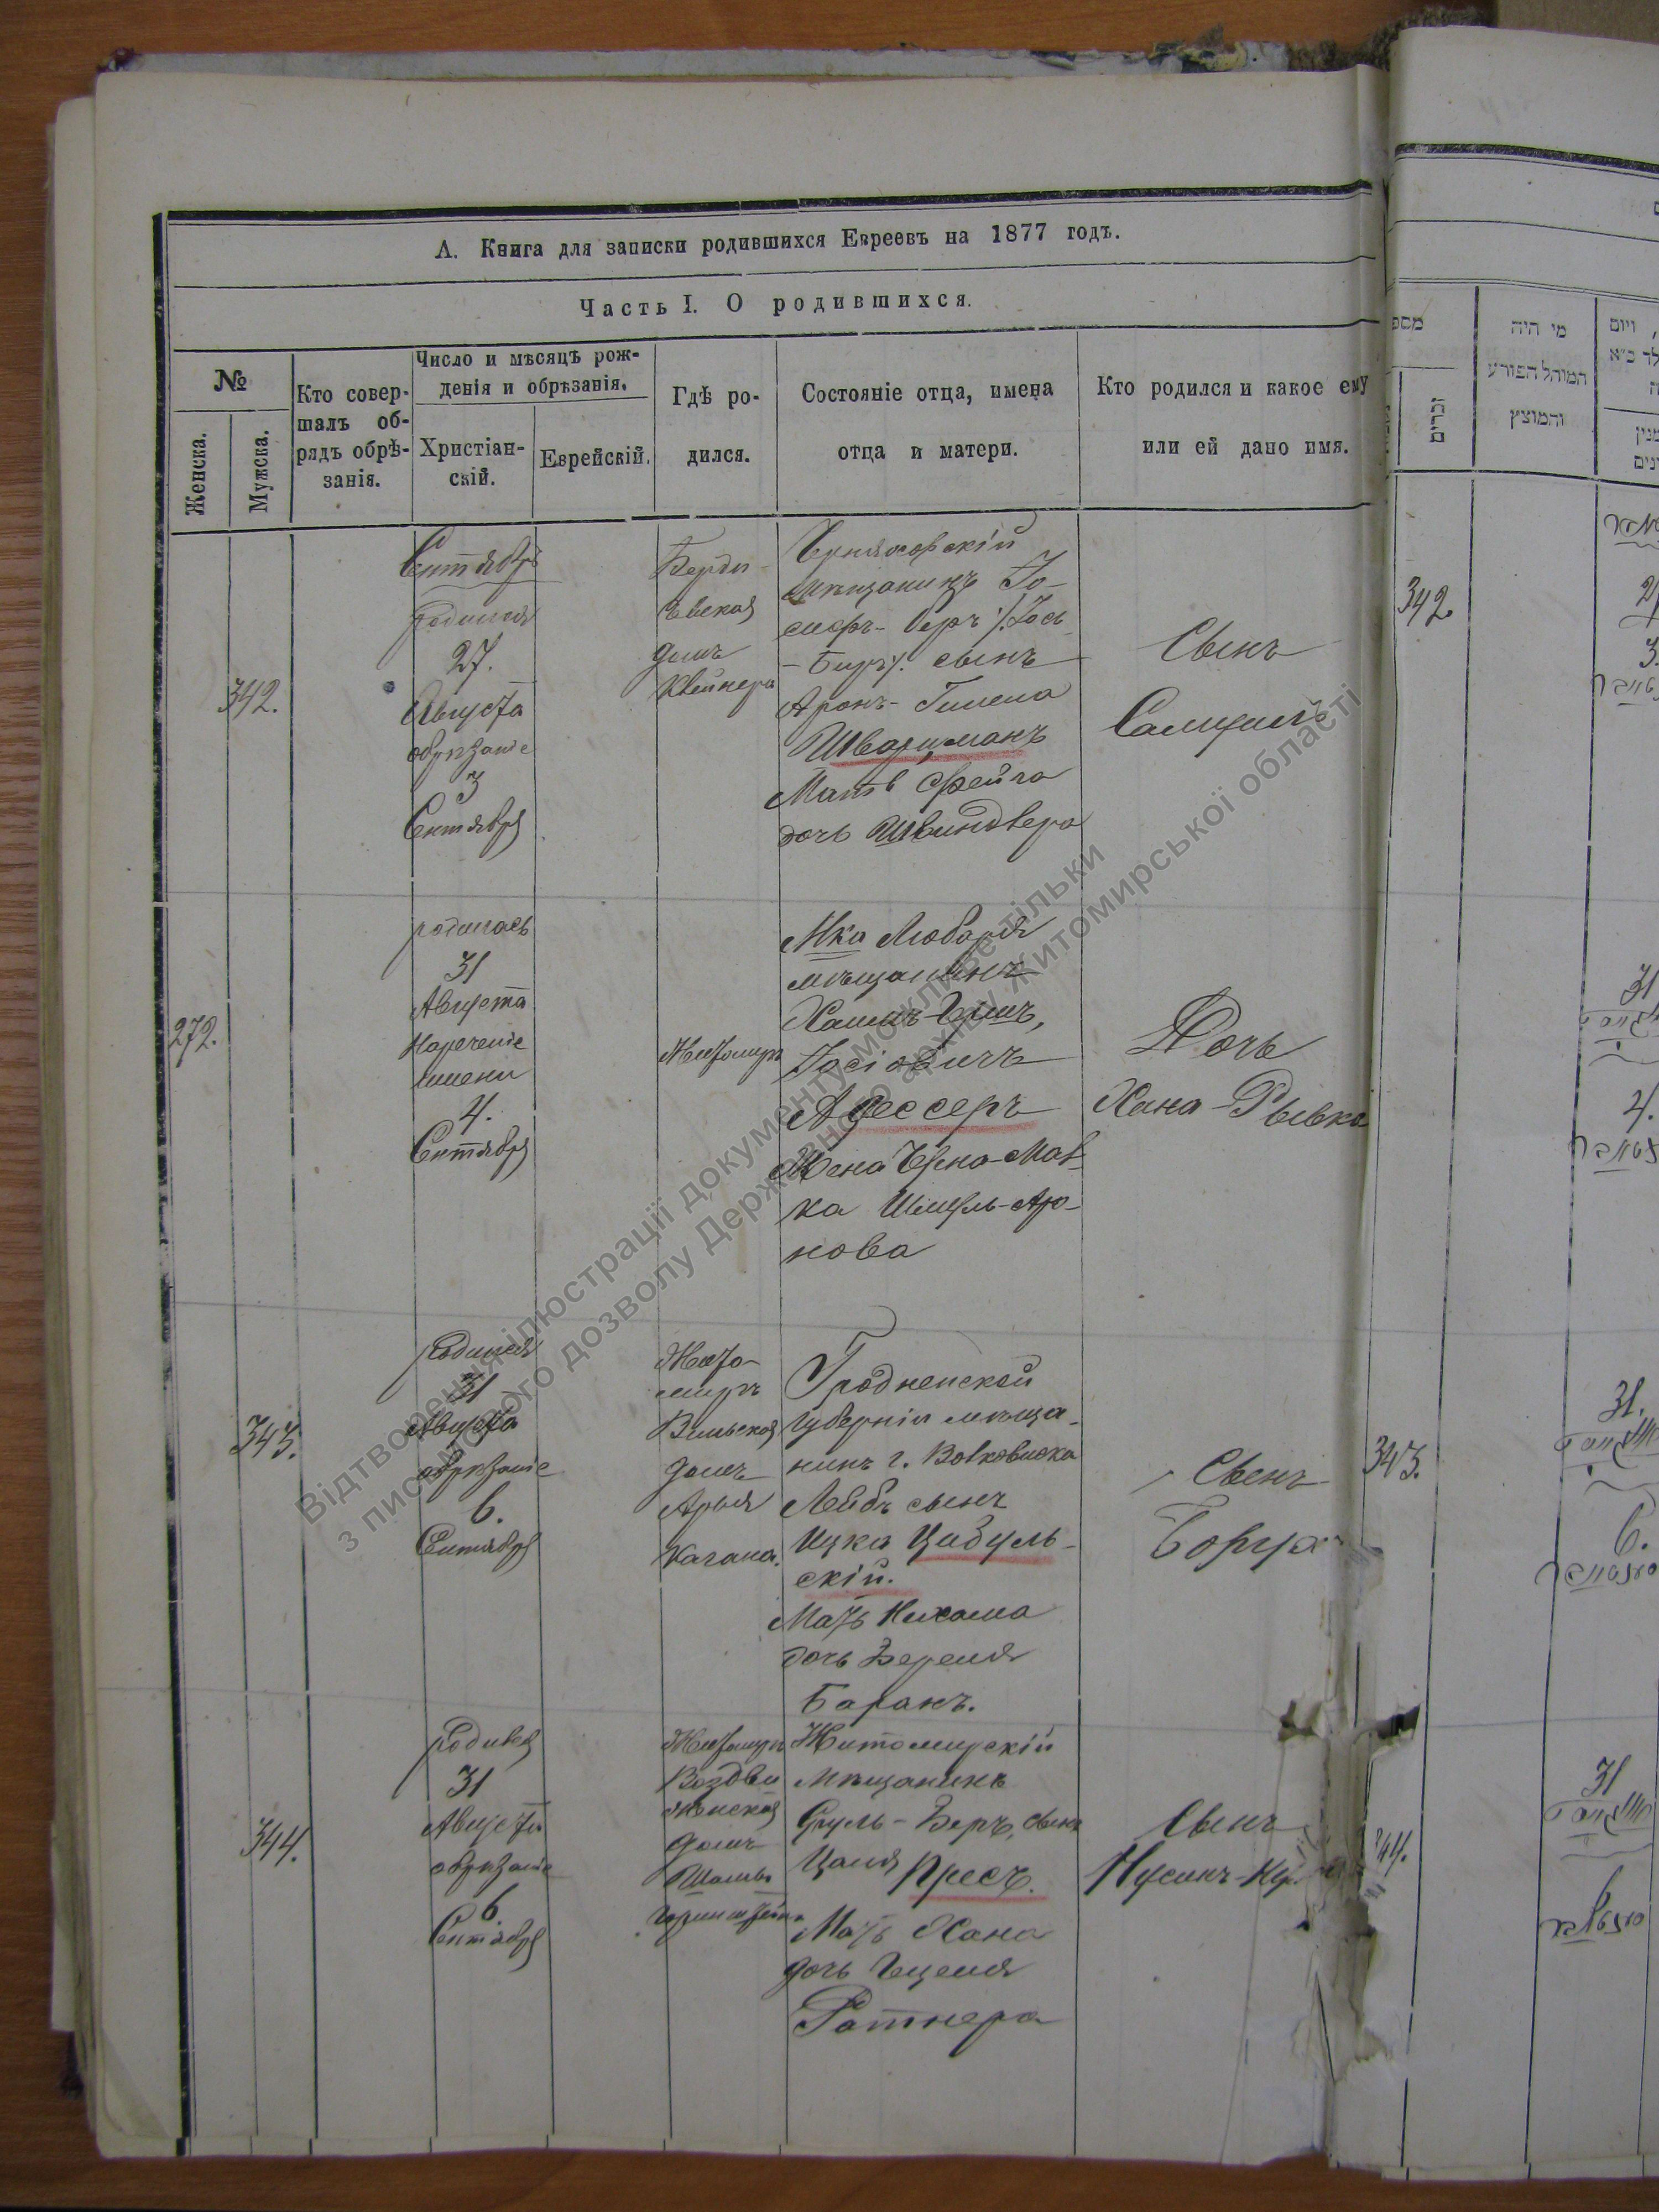 А. Книга для записки родившихся Евреевъ на 1877 годъ.
Часть I. О родившихся.
№
Женска.
Мужска.
Кто совер-
шалъ об-
рядъ обрѣ-
занія.
Число и мѣсяцъ рож-
денія и обрѣзанія.
Христіан-
скій.
Еврейскій.
Гдѣ ро-
дился.
Состояніе отца, имена
отца и матери.
Кто родился и какое ему
или ей дано имя.
מי היה
המוהל הפורע
והמוצץ
זכרים
342.
Сентябрь
родился
27.
Августа
обрѣзаніе
3
Сентября
Берди-
чевская
домъ
Квейнера
Черняховскій
мѣщанинъ Іо-
сифъ-Беръ /:Іось
-Беръ/: сынъ
Аронъ-
Шварцманъ
Мать Фейга
дочь
Сынъ
342.
272.
родилась
31
Августа
Нареченіе
имени
4.
Сентября
Житомиръ
М-ка Любаря
мѣщанинъ
Хаимъ-
Іосіовичъ
Адессеръ
Жена Черна-Мал-
ка Шмуль-Аро-
нова
Дочь
Хана-Рывка
31
4.
343.
родился
31
Августа
обрѣзаніе
6.
Сентября
Жито-
миръ
Вильская
домъ
Арья
Кагана.
Гродненской
губерніи мѣща-
нинъ г. Волковыска
Лейбъ сынъ
Ицка Цибуль-
скій.
Мать Нехама
дочь Береля
Баранъ.
Сынъ
Борухъ
343.
31.
6.
344.
родился
31
Августа
обрѣзаніе
6.
Сентября
Житомиръ
Воздви
женская
домъ
Житомирскій
Мѣщанинъ
Сруль-Беръ, сынъ
Цаля Пресъ.
Мать Хана
дочь Гецеля
Ратнера
Сынъ
Нусинъ-
31
6
Відтворення ілюстрації документу можливе тільки
з письмового дозволу Державного архіву Житомирської області